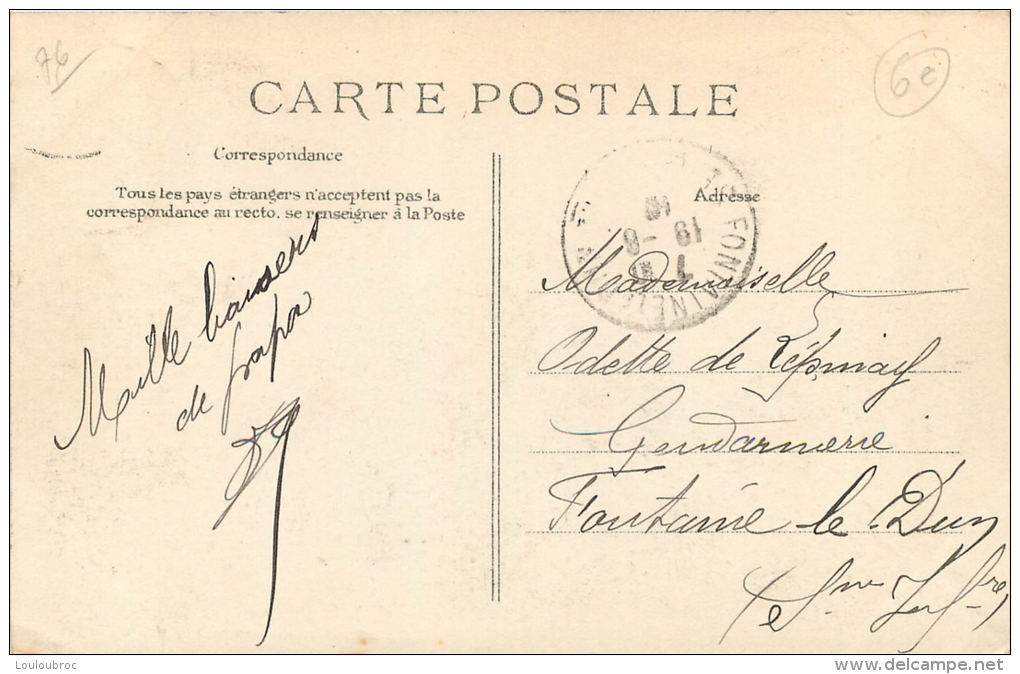 76
6e
CARTE POSTALE
Correspondance
Tous les pays étrangers n'acceptent pas la
correspondance au recto, se renseigner à la Poste
Adresse
FONTAINE
18 -8
Mille baisers
de
Mademoiselle
Odette de
Gendarmerie
Fontaine le Dun
(Sne Infre)
Louloubroc
www.delcampe.net